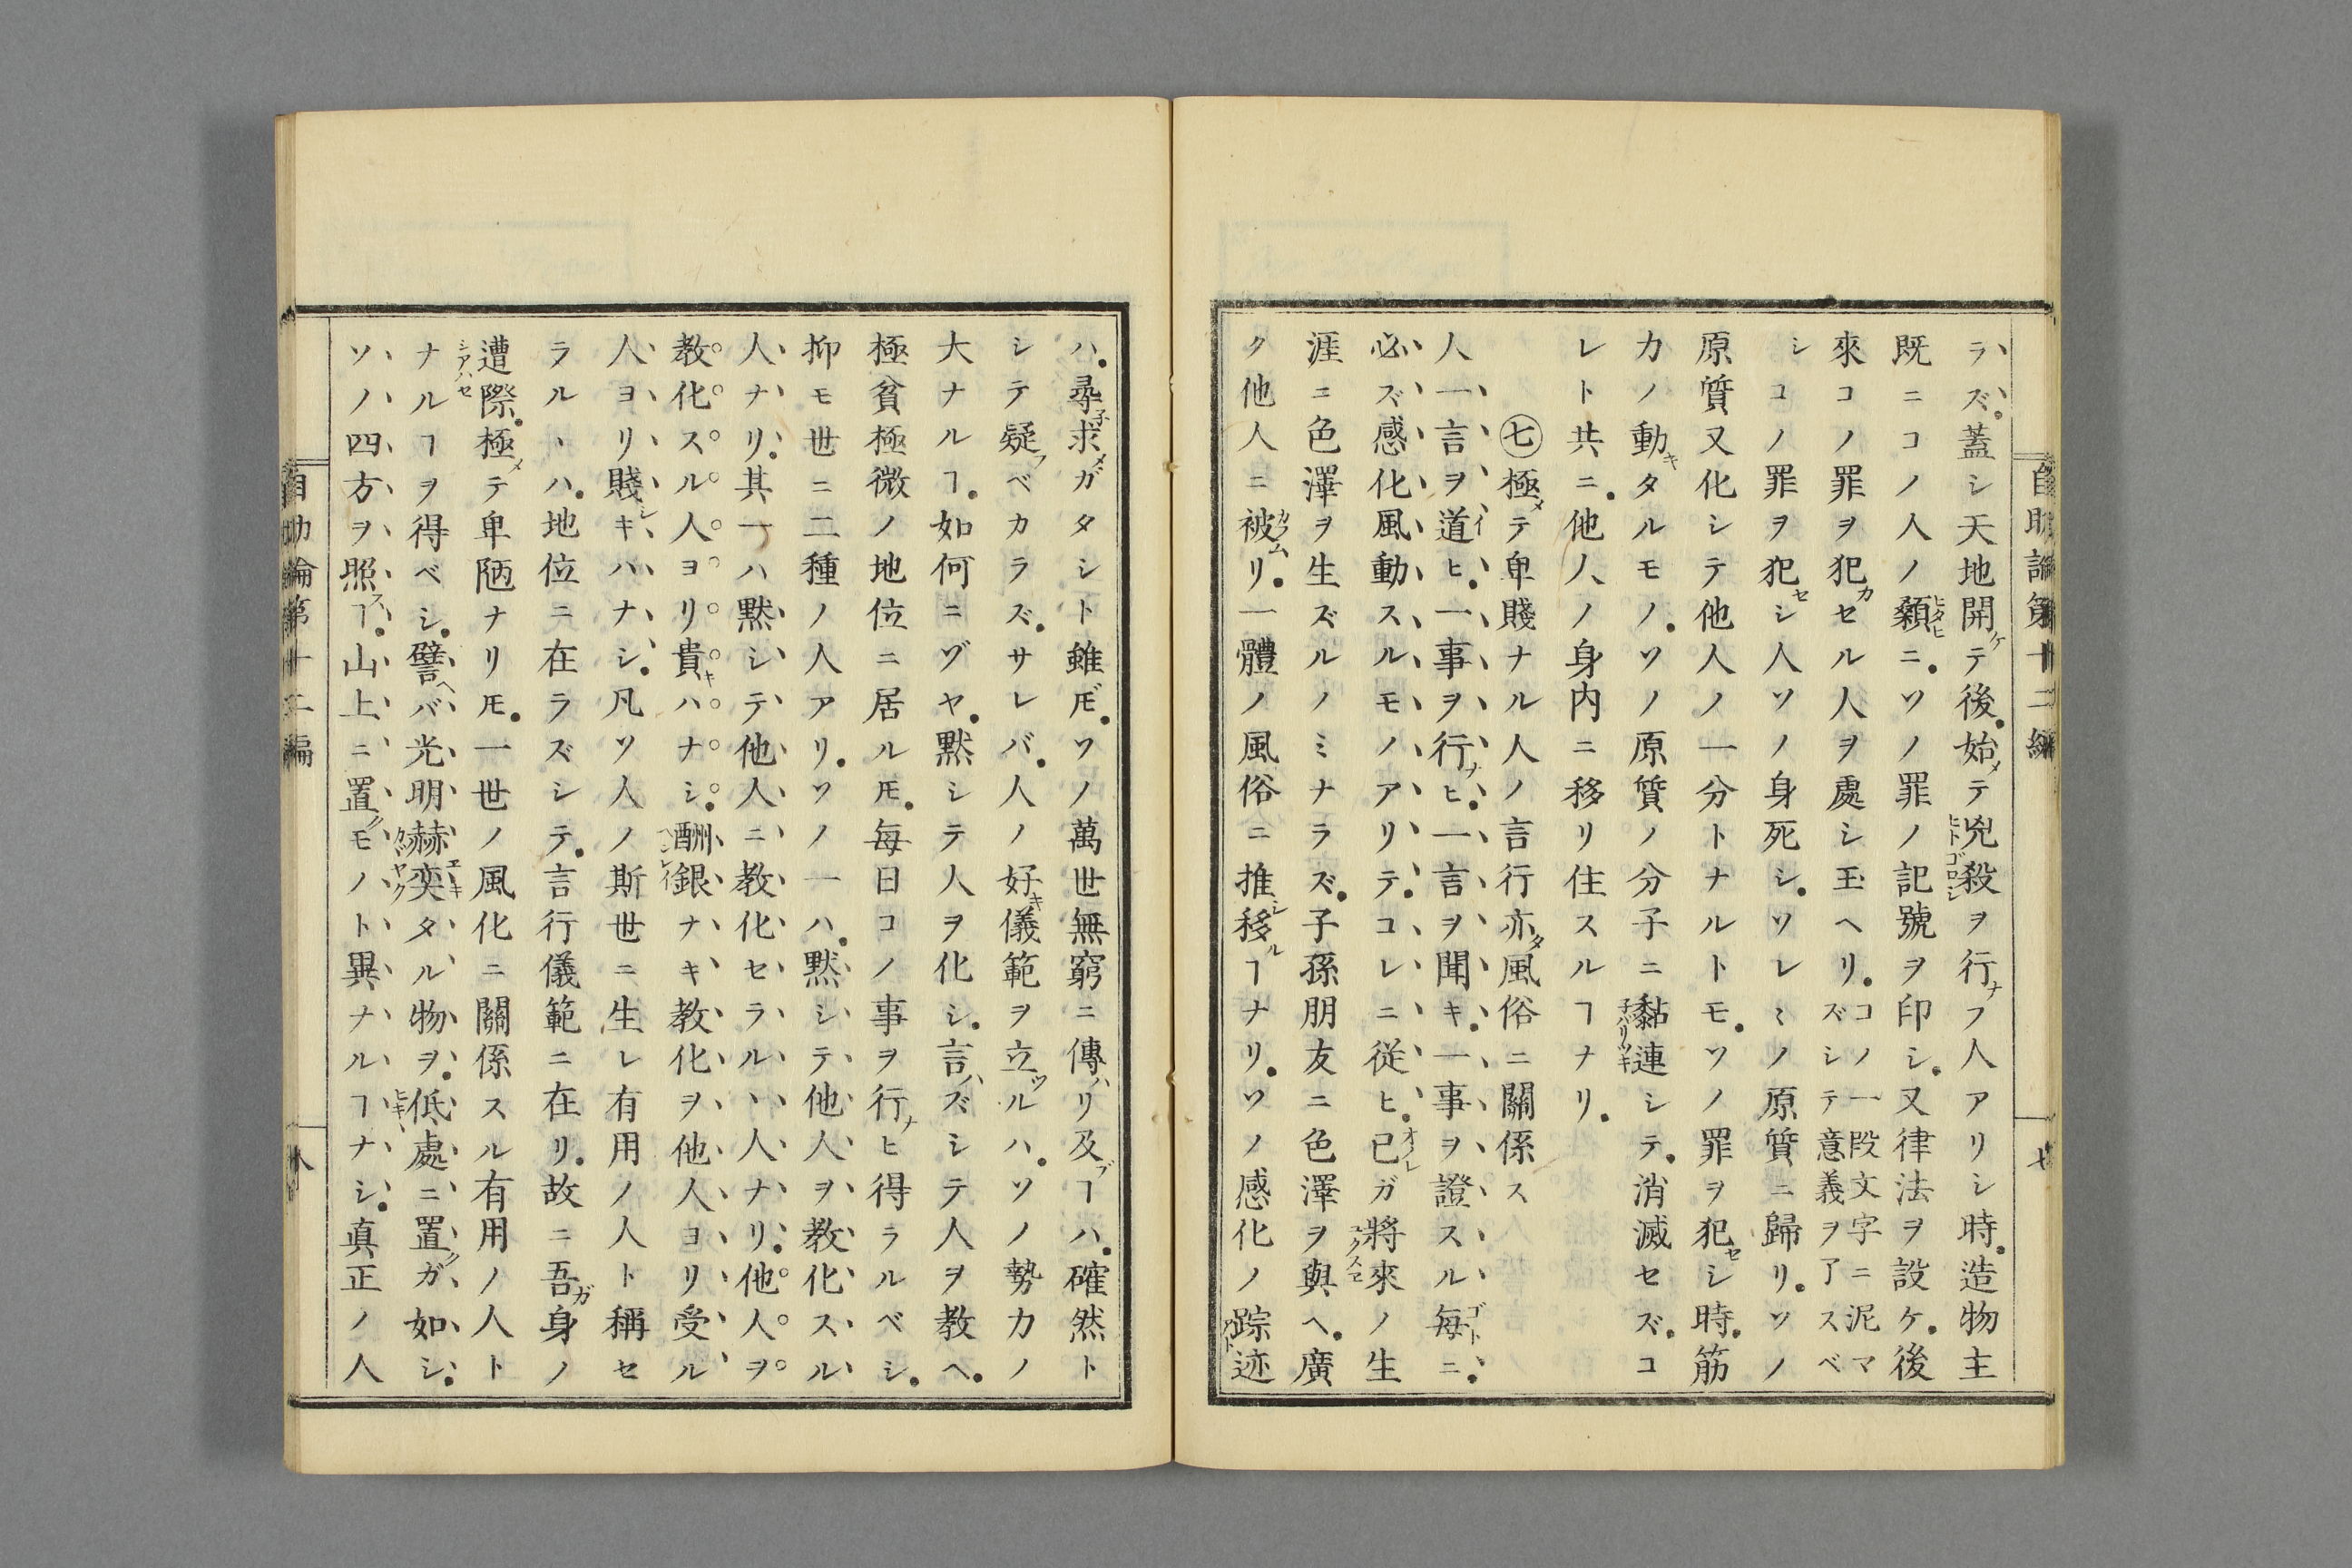 自助論第十二編
七
ラズ。蓋シ天地開ケテ後。始メテ兇殺ヲ行ナフ人アリシ時。造物主
既ニコノ人ノ顙ニ。ソノ罪ノ記號ヲ印シ。又律法ヲ設ケ。後
來コノ罪ヲ犯カセル人ヲ處シ玉ヘリ。コノ一段文字ニ泥マズシテ意義ヲ了スベ
シコノ罪ヲ犯セシ人ソノ身死シ。ソレミノ原質ニ歸リ。ソノ
原質又化シテ他人ノ一分トナルトモ。ソノ罪ヲ犯セシ時。筋
力ノ動キタルモノ。ソノ原質ノ分子ニ黏連シテ。消滅セズ。コ
レト共ニ。他人ノ身内ニ移リ住スルヿナリ。
㊆極メテ卑賤ナル人ノ言行亦タ風俗ニ關係ス
人一言ヲ道イヒ。一事ヲ行ナヒ。一言ヲ聞キ。一事ヲ證スル毎ニ。
必ズ感化風動スルモノアリテ。コレニ従ヒ。已ガ將來ノ生
涯ニ色澤ヲ生ズルノミナラズ。子孫朋友ニ色澤ヲ與ヘ。廣
ク他人ニ被ムリ。一體ノ風俗ニ推シ移ルヿナリ。ソノ感化ノ踪迹
ハ。尋子求メガタシト雖𪜈。ソノ萬世無窮ニ傳ハリ及ブヿハ。確然ト
シテ疑フベカラズ。サレバ。人ノ好キ儀範ヲ立ツルハ。ソノ勢力ノ
大ナルヿ。如何ニゾヤ。黙シテ人ヲ化シ。言ハズシテ人ヲ教ヘ。
極貧極微ノ地位ニ居ル𪜈。毎日コノ事ヲ行ナヒ得ラルベシ。
抑モ世ニ二種ノ人アリ。ソノ一ハ。黙シテ他人ヲ教化スル
人ナリ。其一ハ黙シテ他人ニ教化セラルヽ人ナリ。他人ヲ
教化スル人ヨリ貴キハナシ。酬銀ナキ教化ヲ他人ヨリ受ル
人ヨリ賤シキハナシ。凡ソ人ノ斯世ニ生レ有用ノ人ト稱セ
ラルヽハ。地位ニ在ラズシテ。言行儀範ニ在リ。故ニ吾ガ身ノ
遭際。極メテ卑陋ナリ𪜈。一世ノ風化ニ關係スル有用ノ人ト
ナルヿヲ得ベシ。譬ヘバ光明赫奕タル物ヲ。低處ニ置クガ如シ。
ソノ四方ヲ照スヿ。山上ニ置クモノト異ナルヿナシ。眞正ノ人
自助論第十二編
八